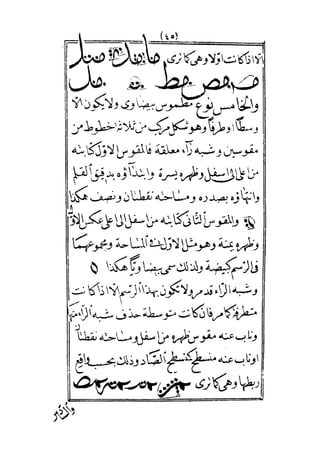 (٤٥)
الا اذا كانت اولا وهى كما ترى
والخامس نوع مطموس بيضاوى ولا يكون الا
وسطا او طرفا وهو شكل مركب من ثلاثة خطوط من
مقوسين وشبه راء معلقة فالمقوس الاول كتابته
من اعلى الى اسفل وظهره يسرة وابتداؤه بدقيق القلم
وانتهاؤه بصدره ومساحته نقطتان ونصف هكذا
والمقوس الثانى كتابته من اسفل الى اعلى عكس الاول
وظهره يمنة وهو مثل الاول فى المساحة ومجموعهما
فى الرسم كبيضة ولذلك سمى بيضاويا هكذا
وشبه الراء قد مر ولا يكون بهذا الرسم الا اذا كانت
متطرفة كما مر فان كانت متوسطة حذف شبه الراء منه
وناب عنه مقوس ظهره من اسفل ومساحته نقطتان
او ناب عنه منسطح كمنسطح الصاد وذلك بحسب واقع
ربطها وهى كما ترى